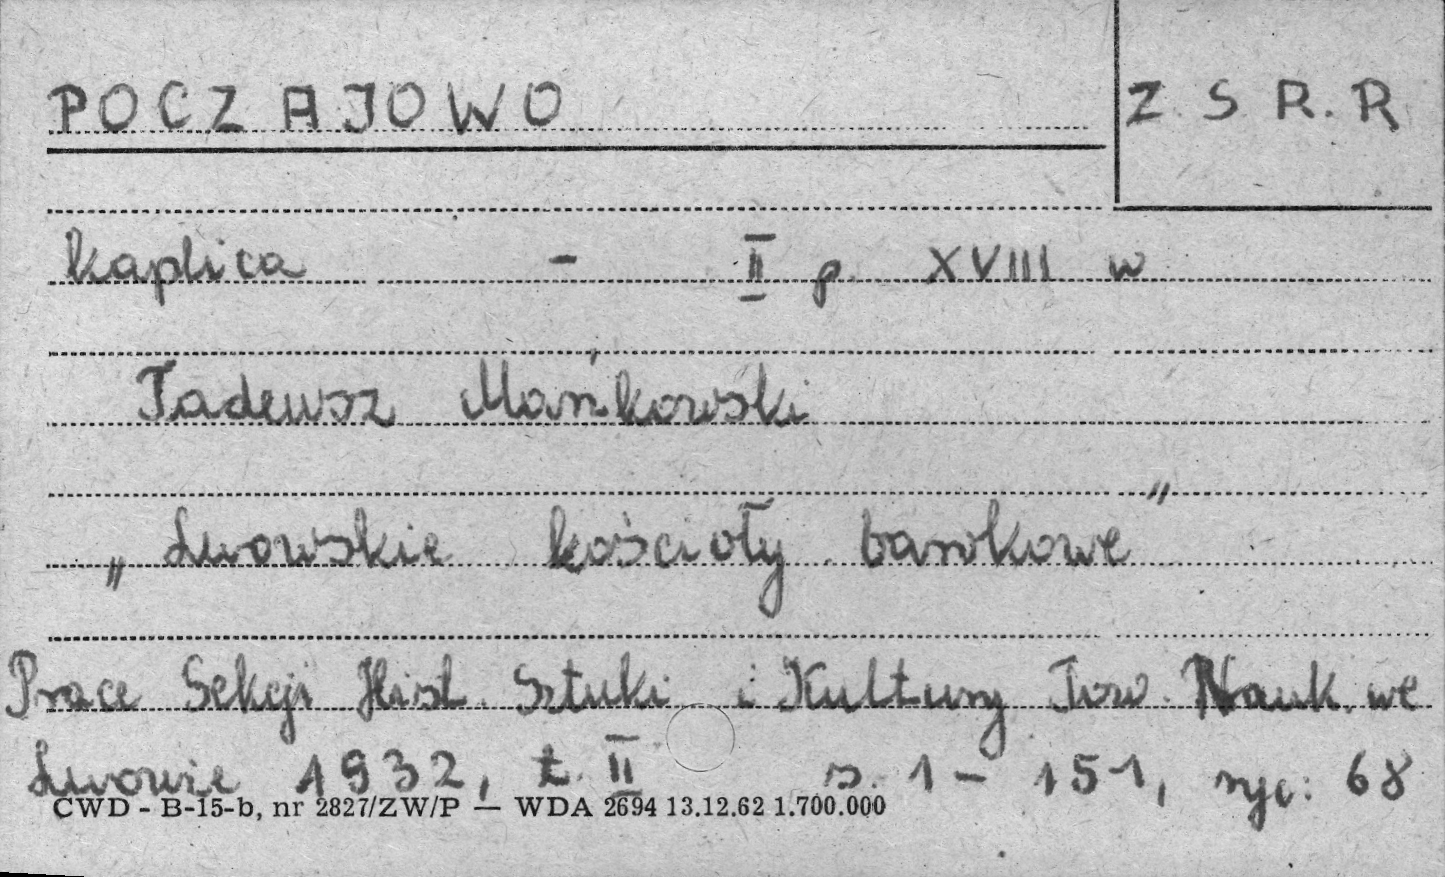 POCZAJOWO
Z.S.R.R
kaplica - II p. XVIII w
Tadeusz Mańkowski
„Lwowskie kościoły barokowe"
Prace Sekcji Hist. Sztuki i Kultury Tow. Nauk. we
Lwowie 1932, t. II s. 1 - 151, ryc: 68
CWD - B-15-b, nr 2827/ZW/P — WDA 2694 13.12.62 1.700.000